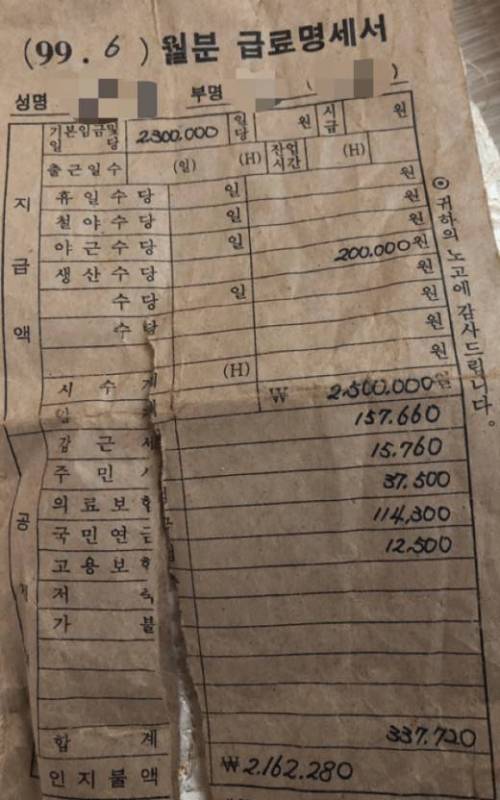 (99. 6 ) 월분 급료명세서
성명 부명 ( )
기본임금및일당 2,300,000 일당 원 시급 원
출근일수 (일) (H) 작업시간 (H)
지급액
휴일수당 일 원
철야수당 일 원
야근수당 일 원
생산수당 200.000원
수당 일 원
수당 원
시수 (H) 원
₩ 2,500,000원
공
갑근세 157.660
주민 15.760
의료보험 37.500
국민연금 114,300
고용보험 12.500
저축
가불
합계 337.720
인지불액 ₩2.162.280
⊙ 귀하의 노고에 감사드립니다.